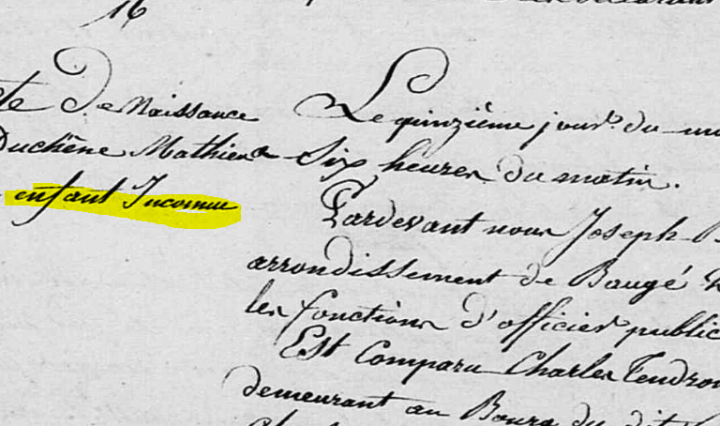 16
te De Naissance
Duchêne Mathieu
enfant Inconnu
Le quinzième jour du
Six heures du matin.
Pardevant nous Joseph
arrondissement de Baugé
les fonctions d'officier public
Est Comparu Charles Tendron
demeurant au Bourg du dit